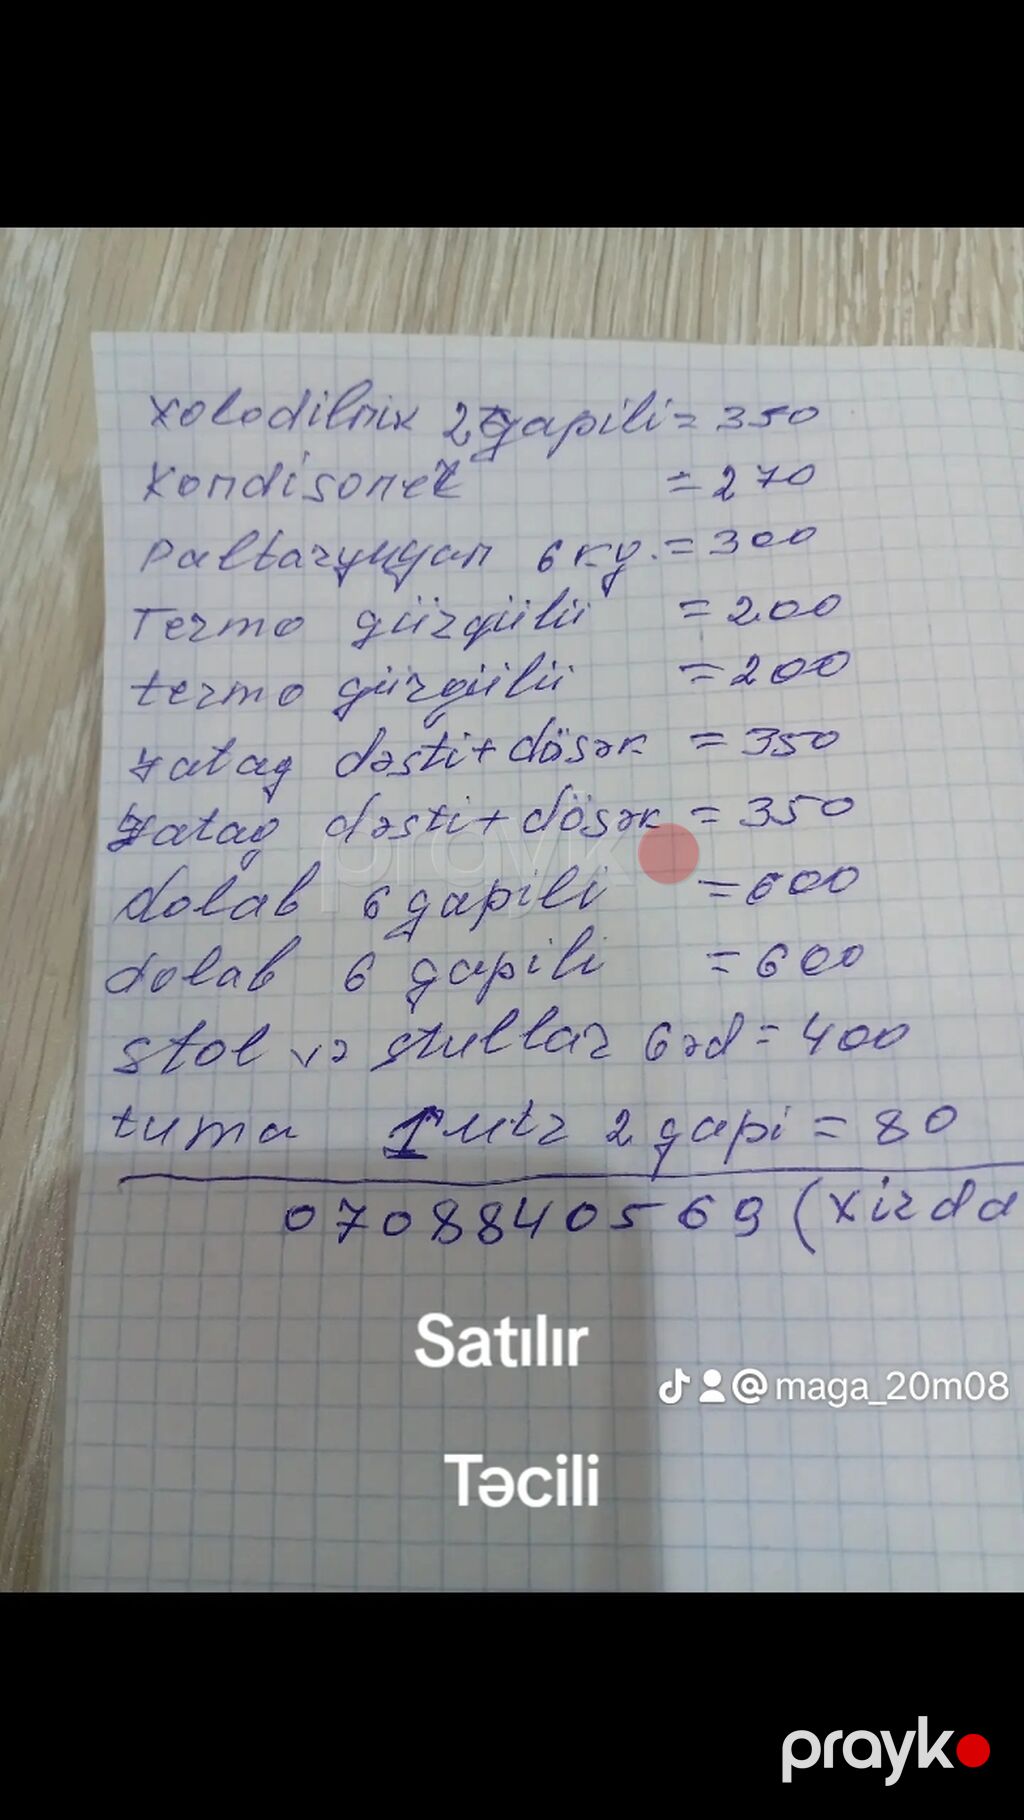 Xolodilnik 2 gapili = 350
Kondisoner = 270
Paltaryuyan 6 kg. = 300
Termo gürgülü = 200
termo gürgülü = 200
yatag dəsti + döşək = 350
yatag dəsti + döşək = 350
prayk
dolab 6 gapili = 600
dolab 6 gapili = 600
stol və stullar 6 əd = 400
tuma 1 mtr 2 gapi = 80
0708840569 (Xirda
Satılır
@maga_20m08
Təcili
prayk